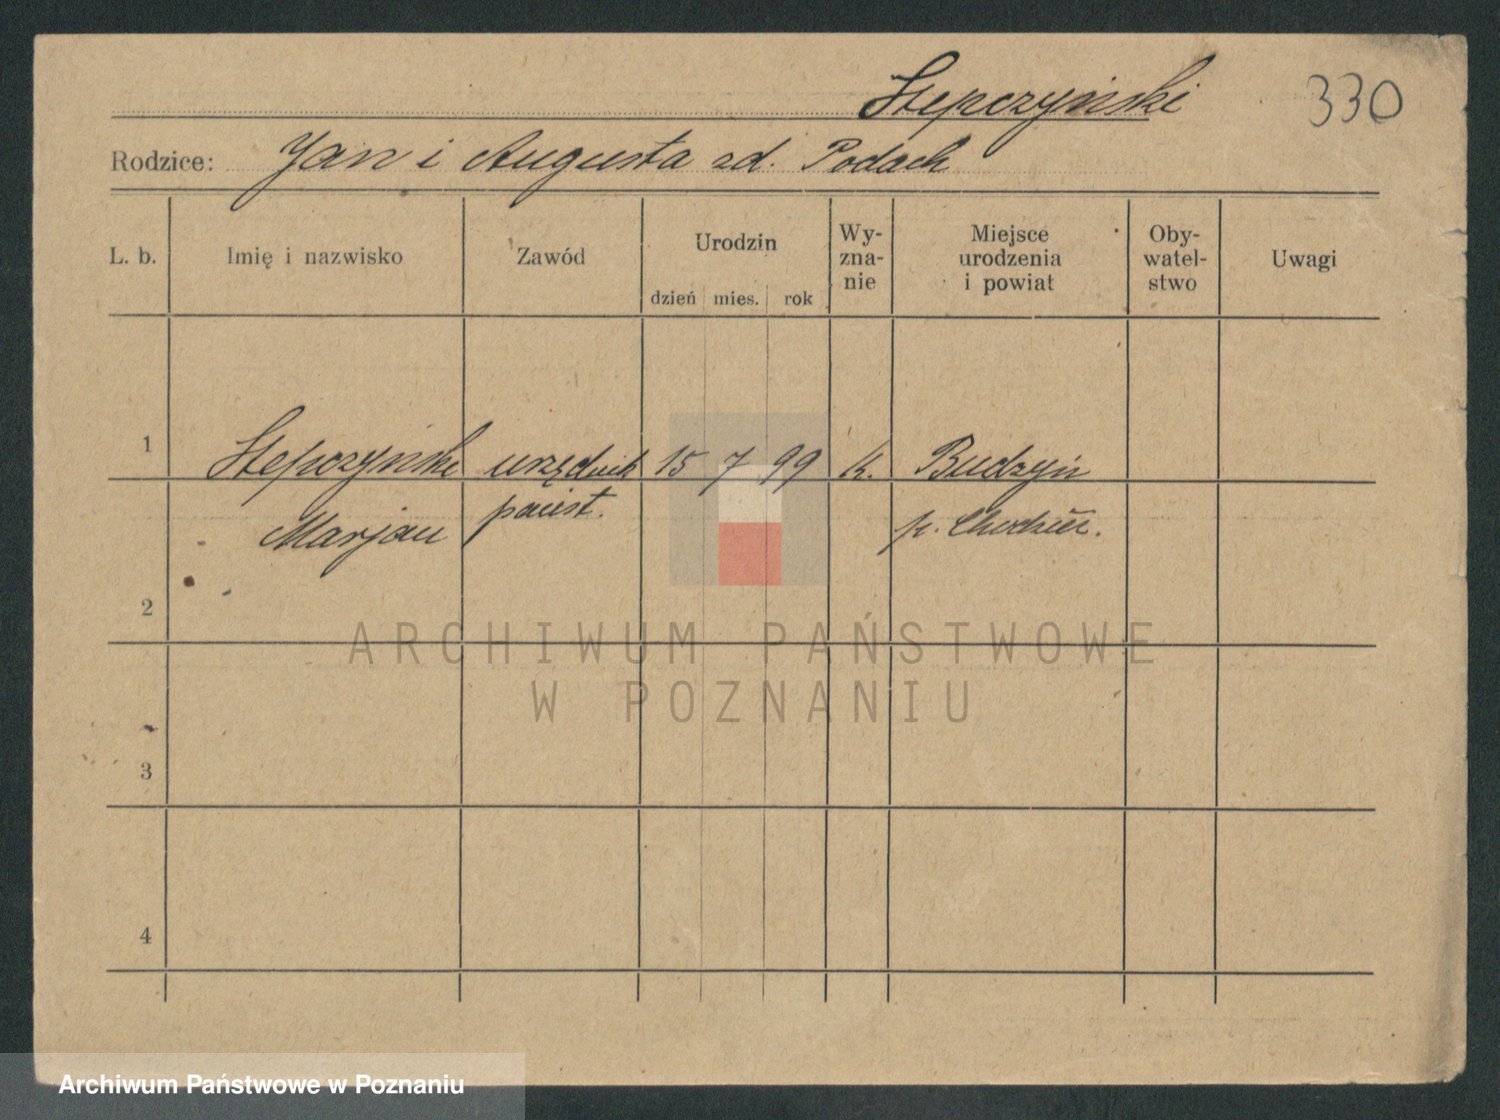 Stepczyński 330
Rodzice: Jan i Augusta zd. Podach
L. b. Imię i nazwisko Zawód Urodzin Wy- Miejsce Oby-
zna- urodzenia watel- Uwagi
dzień mies. rok nie i powiat stwo
1 Stepczyński urzędnik 15 7 99 k. Budzyń
Marjan państ. p. Chodzież.
2
3
4
ARCHIWUM PAŃSTWOWE
W POZNANIU
Archiwum Państwowe w Poznaniu